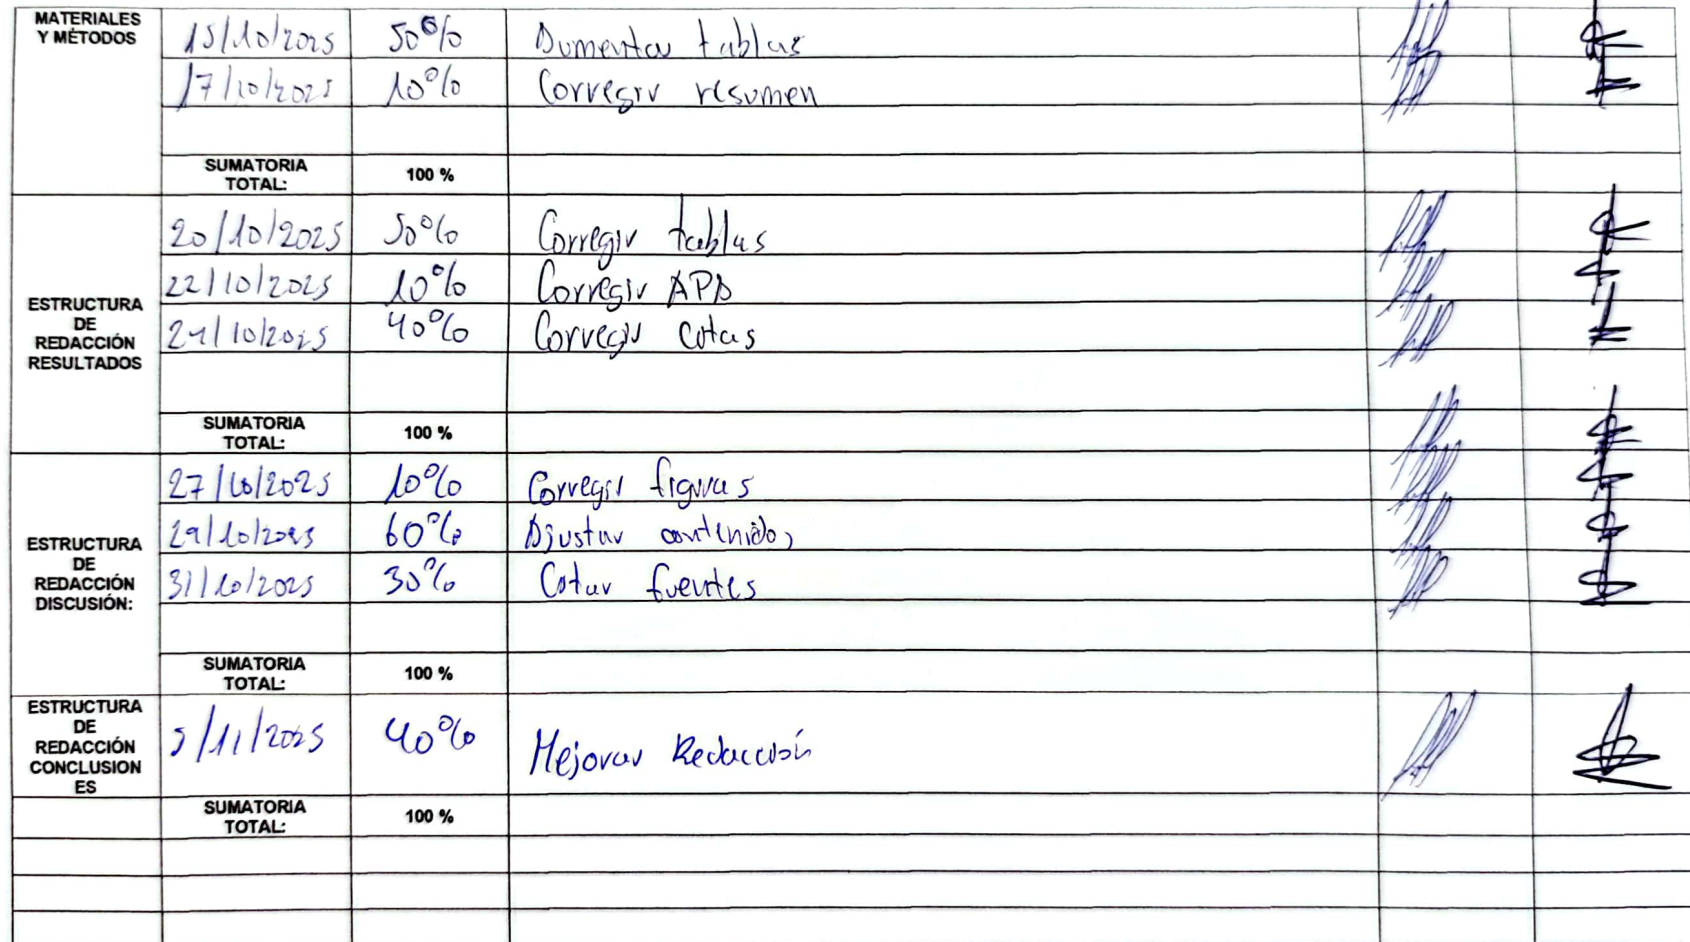 MATERIALES
Y MÉTODOS
15/10/2025 50% Aumentar tablas
17/10/2025 10% Corregir resumen
SUMATORIA
TOTAL: 100 %
ESTRUCTURA
DE
REDACCIÓN
RESULTADOS
20/10/2025 50% Corregir tablas
22/10/2025 10% Corregir APA
24/10/2025 40% Corregir Citas
SUMATORIA
TOTAL: 100 %
ESTRUCTURA
DE
REDACCIÓN
DISCUSIÓN:
27/10/2025 10% Corregir figuras
29/10/2025 60% Ajustar contenido,
31/10/2025 30% Citar fuentes
SUMATORIA
TOTAL: 100 %
ESTRUCTURA
DE
REDACCIÓN
CONCLUSION
ES
5/11/2025 40% Mejorar Redacción
SUMATORIA
TOTAL: 100 %